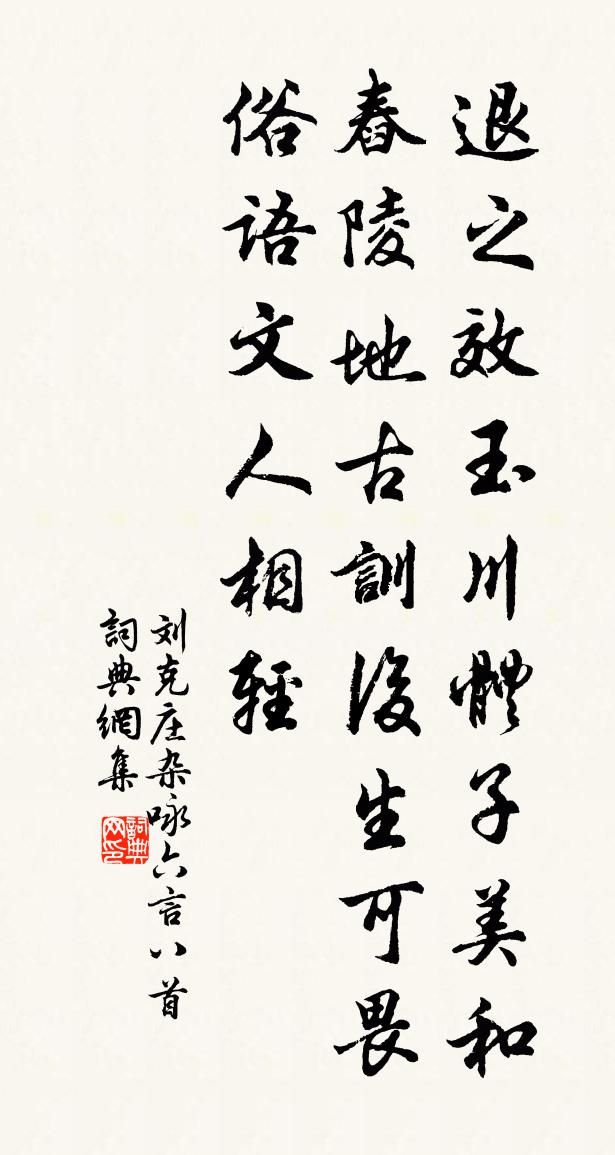 退之效玉川體子美和
舂陵地古訓後生可畏
俗語文人相輕
刘克庄杂咏六言八首
詞典網集
詞典网印